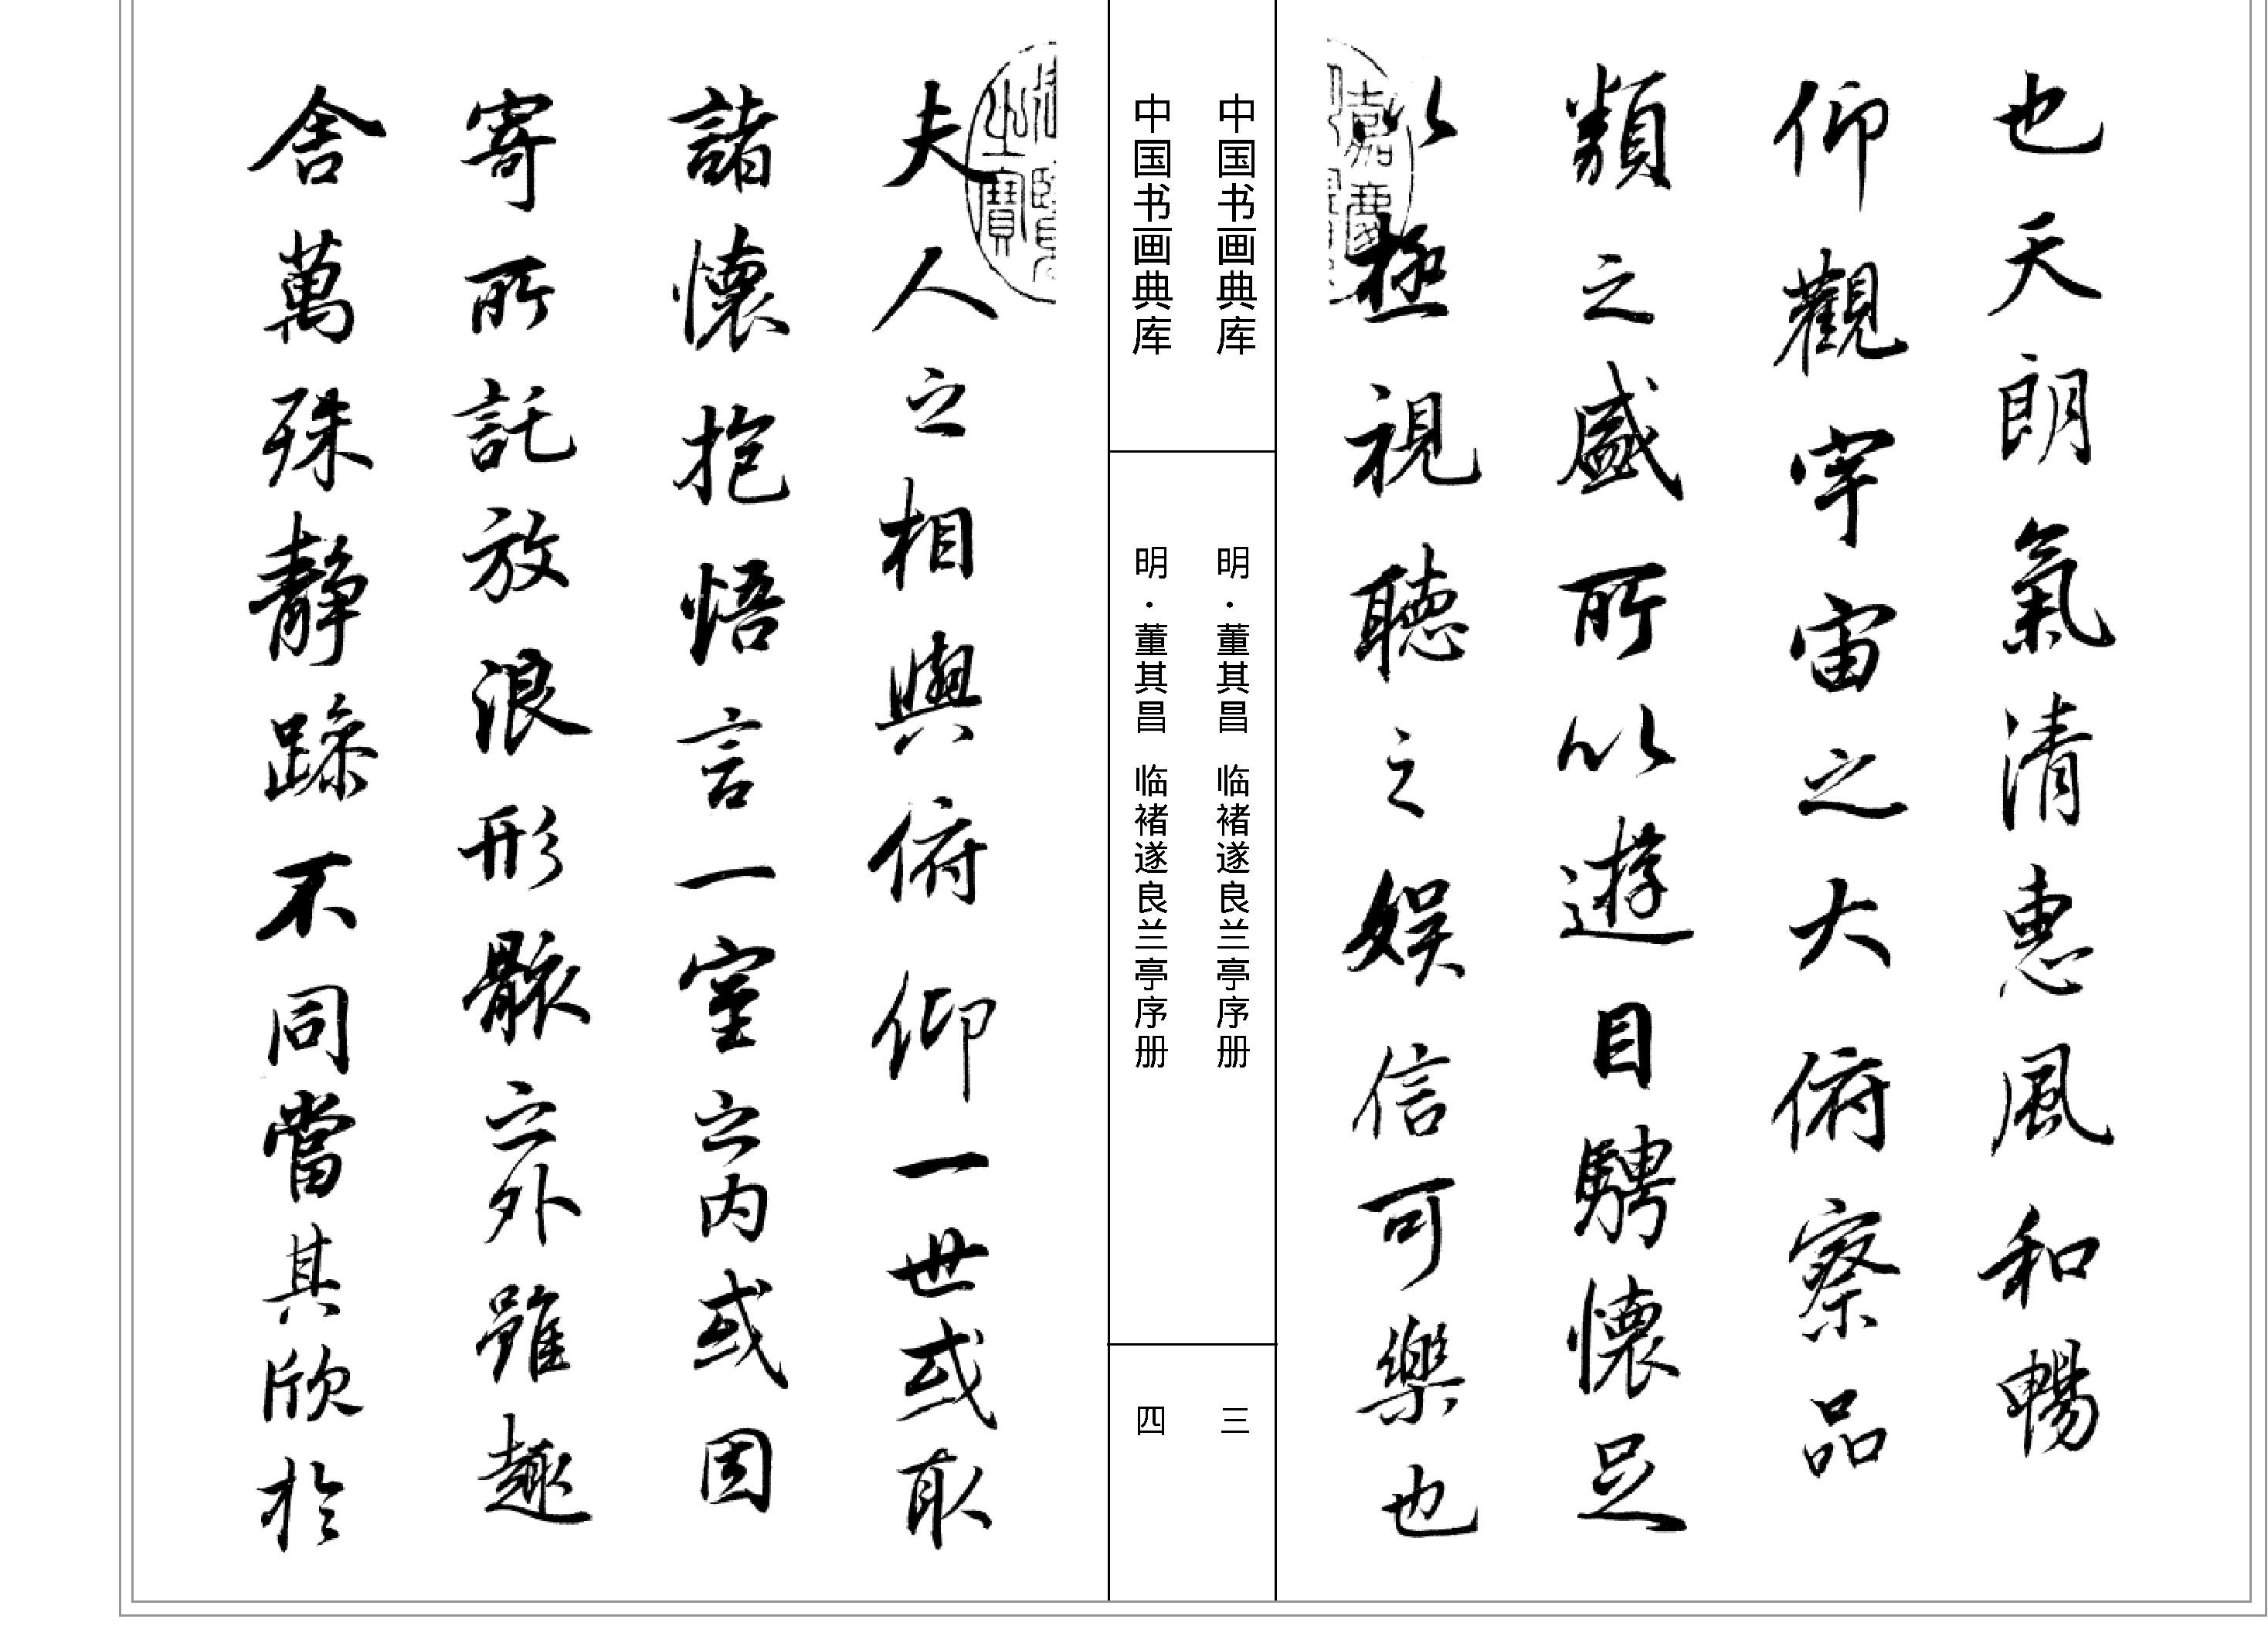 也天朗氣清惠風和暢
仰觀宇宙之大俯察品
類之盛所以遊目騁懷足
以極視聽之娛信可樂也
中国书画典库
明·董其昌 临褚遂良兰亭序册
三
中国书画典库
明·董其昌 临褚遂良兰亭序册
四
夫人之相與俯仰一世或取
諸懷抱悟言一室之內或因
寄所託放浪形骸之外雖趣
舍萬殊靜躁不同當其欣於